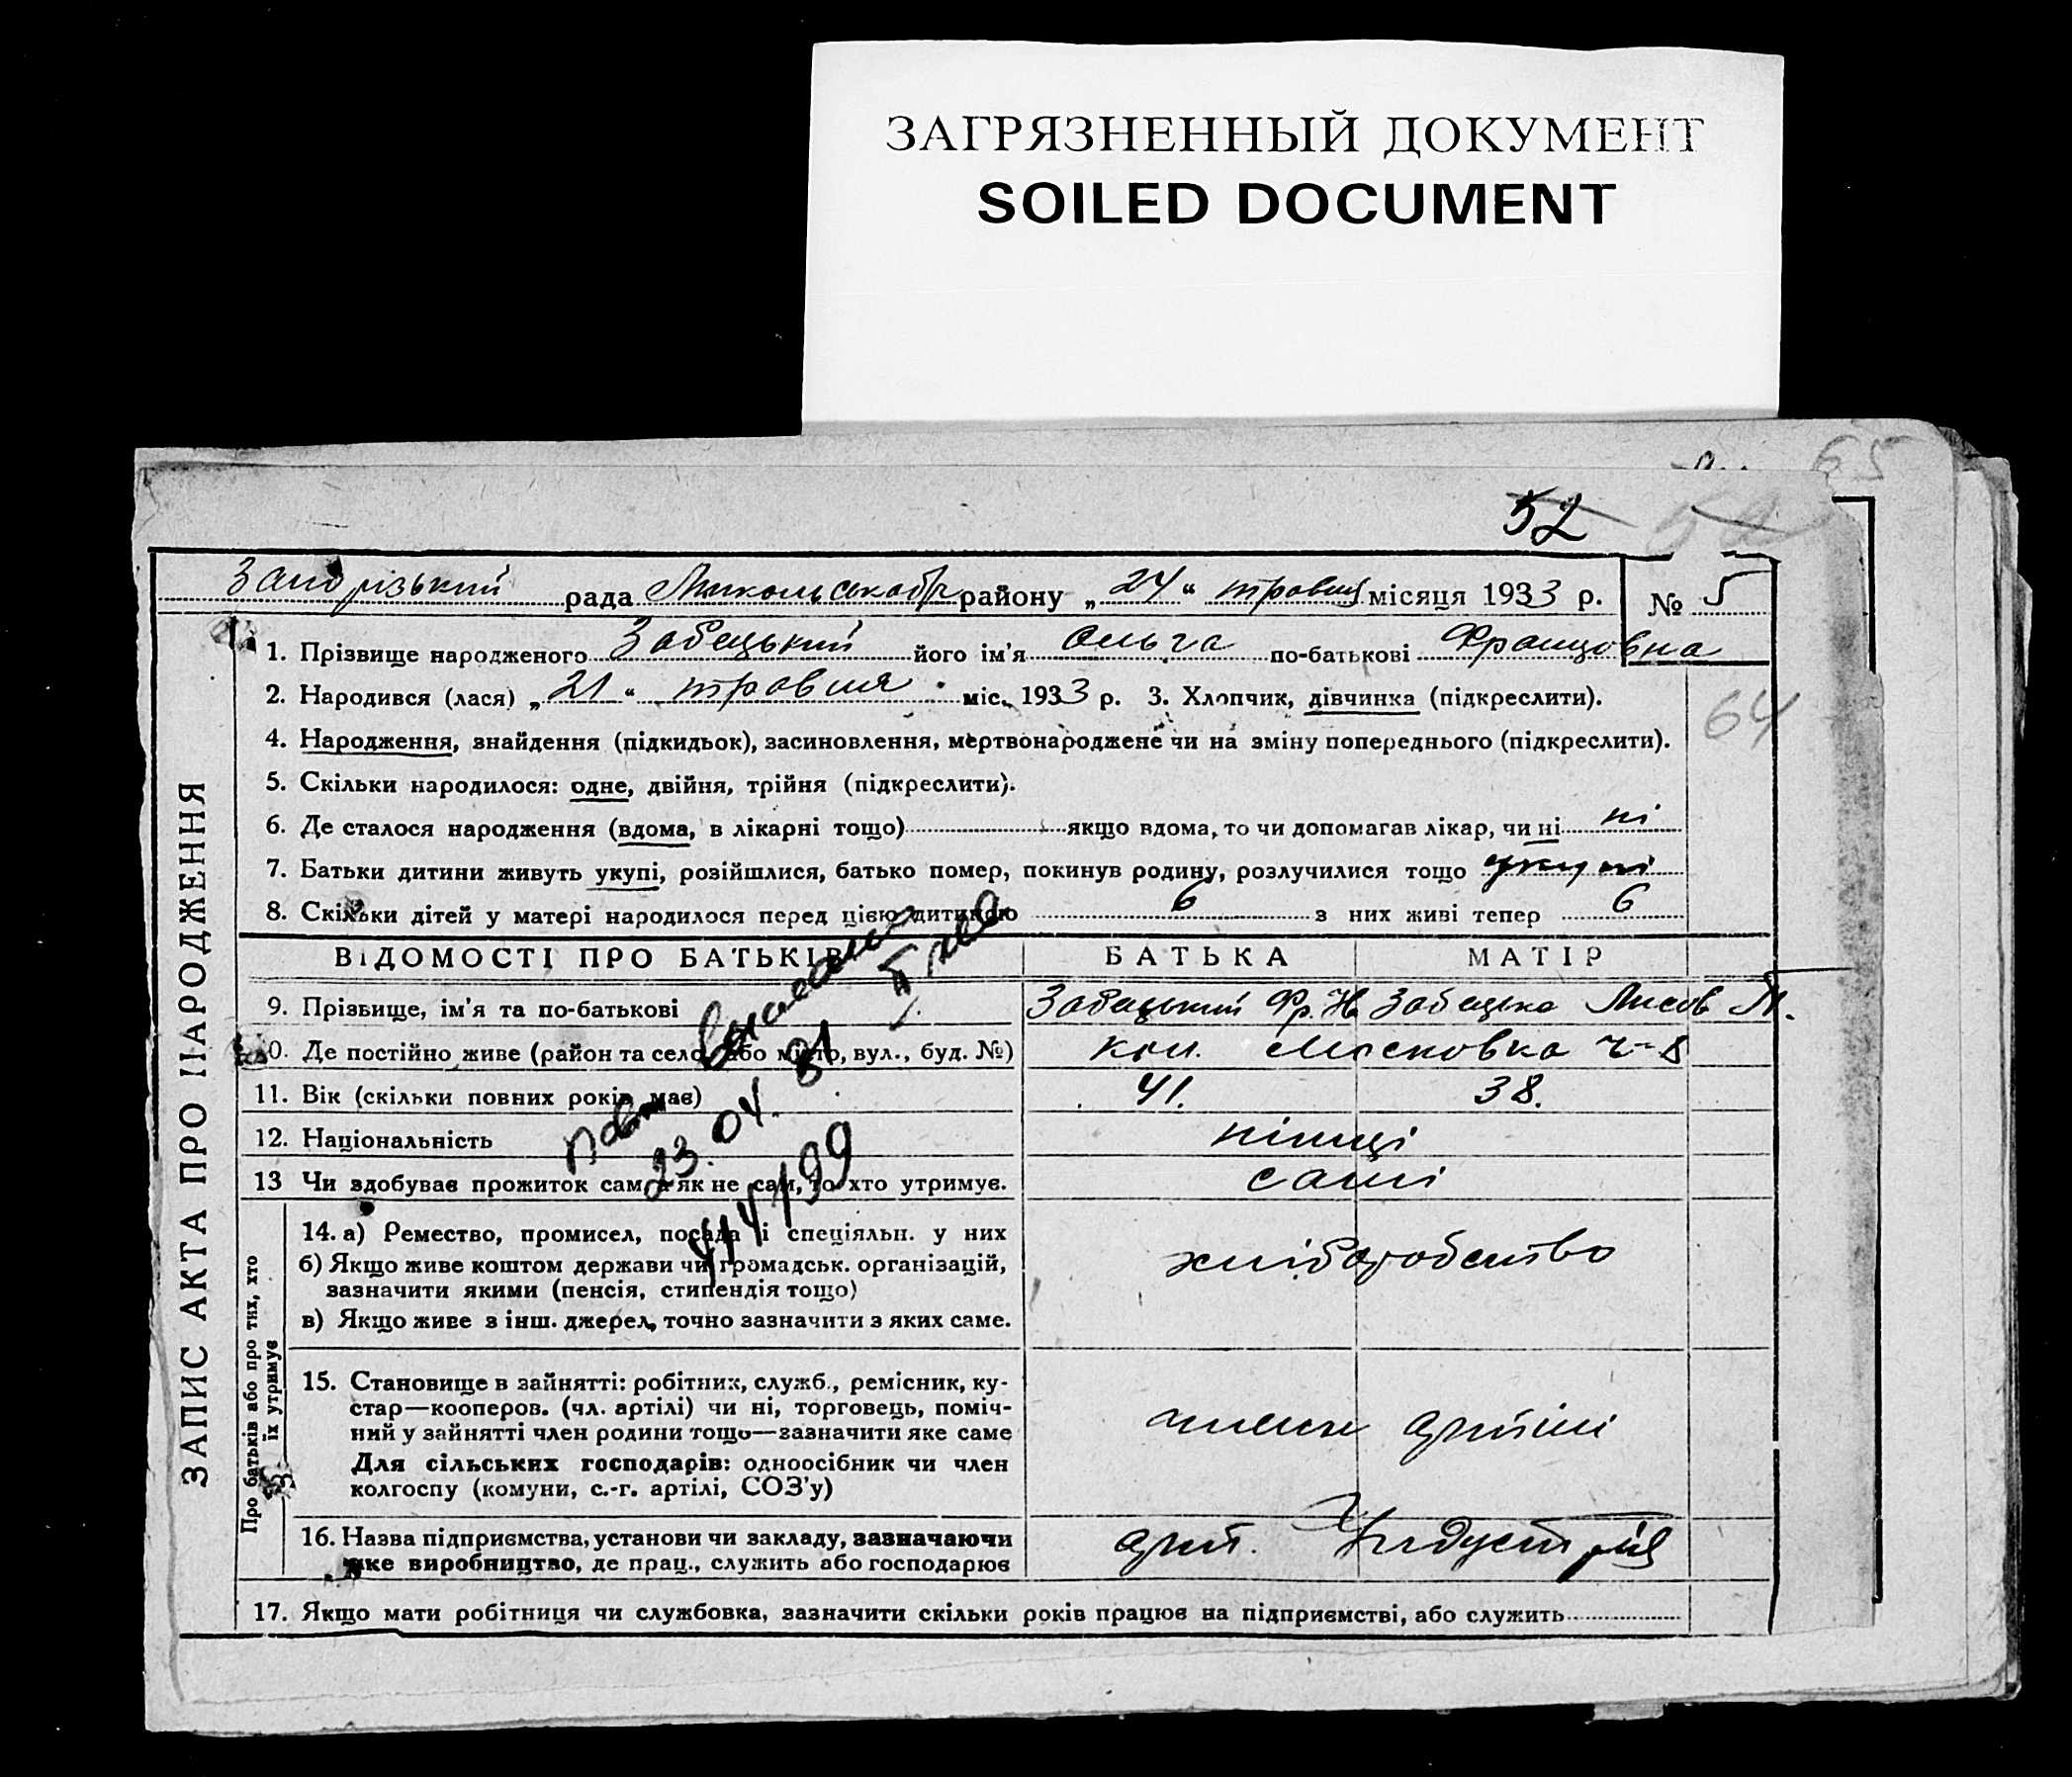 ЗАГРЯЗНЕННЫЙ ДОКУМЕНТ
SOILED DOCUMENT
65
52
ЗАПИС АКТА ПРО НАРОДЖЕННЯ
рада району „24“ травня місяця 1933 р. № 5
1. Прізвище народженого Забецький його ім'я Ольга по-батькові Францовна
2. Народився (лася) „21“ травня міс. 1933 р. 3. Хлопчик, дівчинка (підкреслити).
64
4. Народження, знайдення (підкидьок), засиновлення, мертвонароджене чи на зміну попереднього (підкреслити).
5. Скільки народилося: одне, двійня, трійня (підкреслити).
6. Де сталося народження (вдома, в лікарні тощо) якщо вдома, то чи допомагав лікар, чи ні ні
7. Батьки дитини живуть укупі, розійшлися, батько помер, покинув родину, розлучилися тощо укупі
8. Скільки дітей у матері народилося перед цією дитиною 6 з них живі тепер 6
ВІДОМОСТІ ПРО БАТЬКІВ БАТЬКА МАТІР
9. Прізвище, ім'я та по-батькові Забецький Фр. Забецка
10. Де постійно живе (район та село або місто, вул., буд. №) кол.
11. Вік (скільки повних років має) 41. 38.
12. Національність німці
13 Чи здобуває прожиток сам, а як не сам, то хто утримує. самі
23.04.81
Про батьків або про тих, хто
їх утримує
14. а) Ремество, промисел, посада і спеціяльн. у них
б) Якщо живе коштом держави чи громадськ. організацій,
зазначити якими (пенсія, стипендія тощо)
в) Якщо живе з інш. джерел, точно зазначити з яких саме.
хліборобство
15. Становище в зайнятті: робітник, служб., ремісник, ку-
стар—кооперов. (чл. артілі) чи ні, торговець, поміч-
ний у зайнятті член родини тощо—зазначити яке саме
Для сільських господарів: одноосібник чи член
колгоспу (комуни, с.-г. артілі, СОЗ'у)
члени артілі
16. Назва підприємства, установи чи закладу, зазначаючи
яке виробництво, де прац., служить або господарює
арт. Індустрія
17. Якщо мати робітниця чи службовка, зазначити скільки років працює на підприємстві, або служить